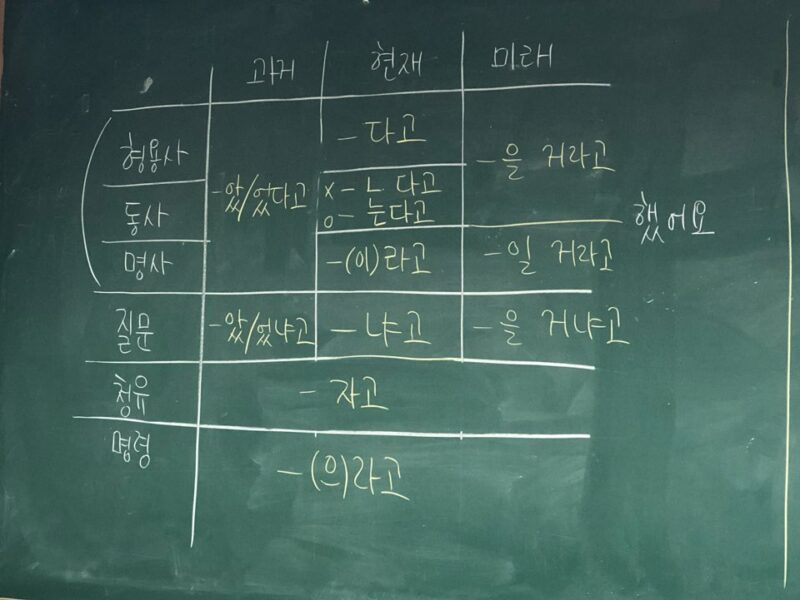 과거 현재 미래
형용사 -다고 -을 거라고
-았/었다고 x - ㄴ 다고
동사 o - 는다고 했어요
명사 -(이)라고 -일 거라고
질문 -았/었냐고 -냐고 -을 거냐고
청유 - 자고
명령 -(으)라고